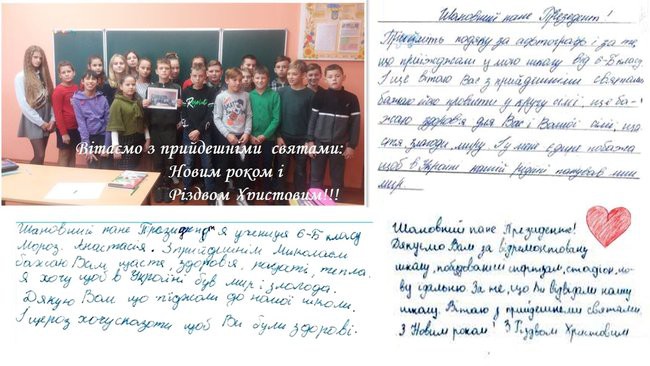 Вітаємо з прийдешніми святами:
Новим роком і
Різдвом Христовим!!!
Шановний пане Президент!
Прийміть подяку за автограф і за те,
що приїжджали у мою школу від 6-Б класу
І ще вітаю Вас з прийдешніми святами
бажаю його провити у друзу сімї, ще ба-
жаю здоров'я для Вас і Вашої сімї, ща-
стя, злагоди, миру. І у мене єдине побажа
щоб в Україні нашій неньці панував
мир
Шановний пане Президент я учениця 6-Б класу
Мороз Анастасія. З прийдешнім Миколаєм
бажаю Вам щастя, здоров'я, радості, тепла.
Я хочу щоб в Україні був мир і злагода.
Дякую Вам що приїжали до нашої школи.
І щераз хочу сказати щоб Ви були здорові.
Шановний пане Президенте!
Дякуємо Вам за відремонтовану
школу, побудований спортзал, стадіон, но-
ву їдальню. За те, що Ви відвідали нашу
школу. Вітаю з прийдешніми святами.
З Новим роком! З Різдвом Христовим